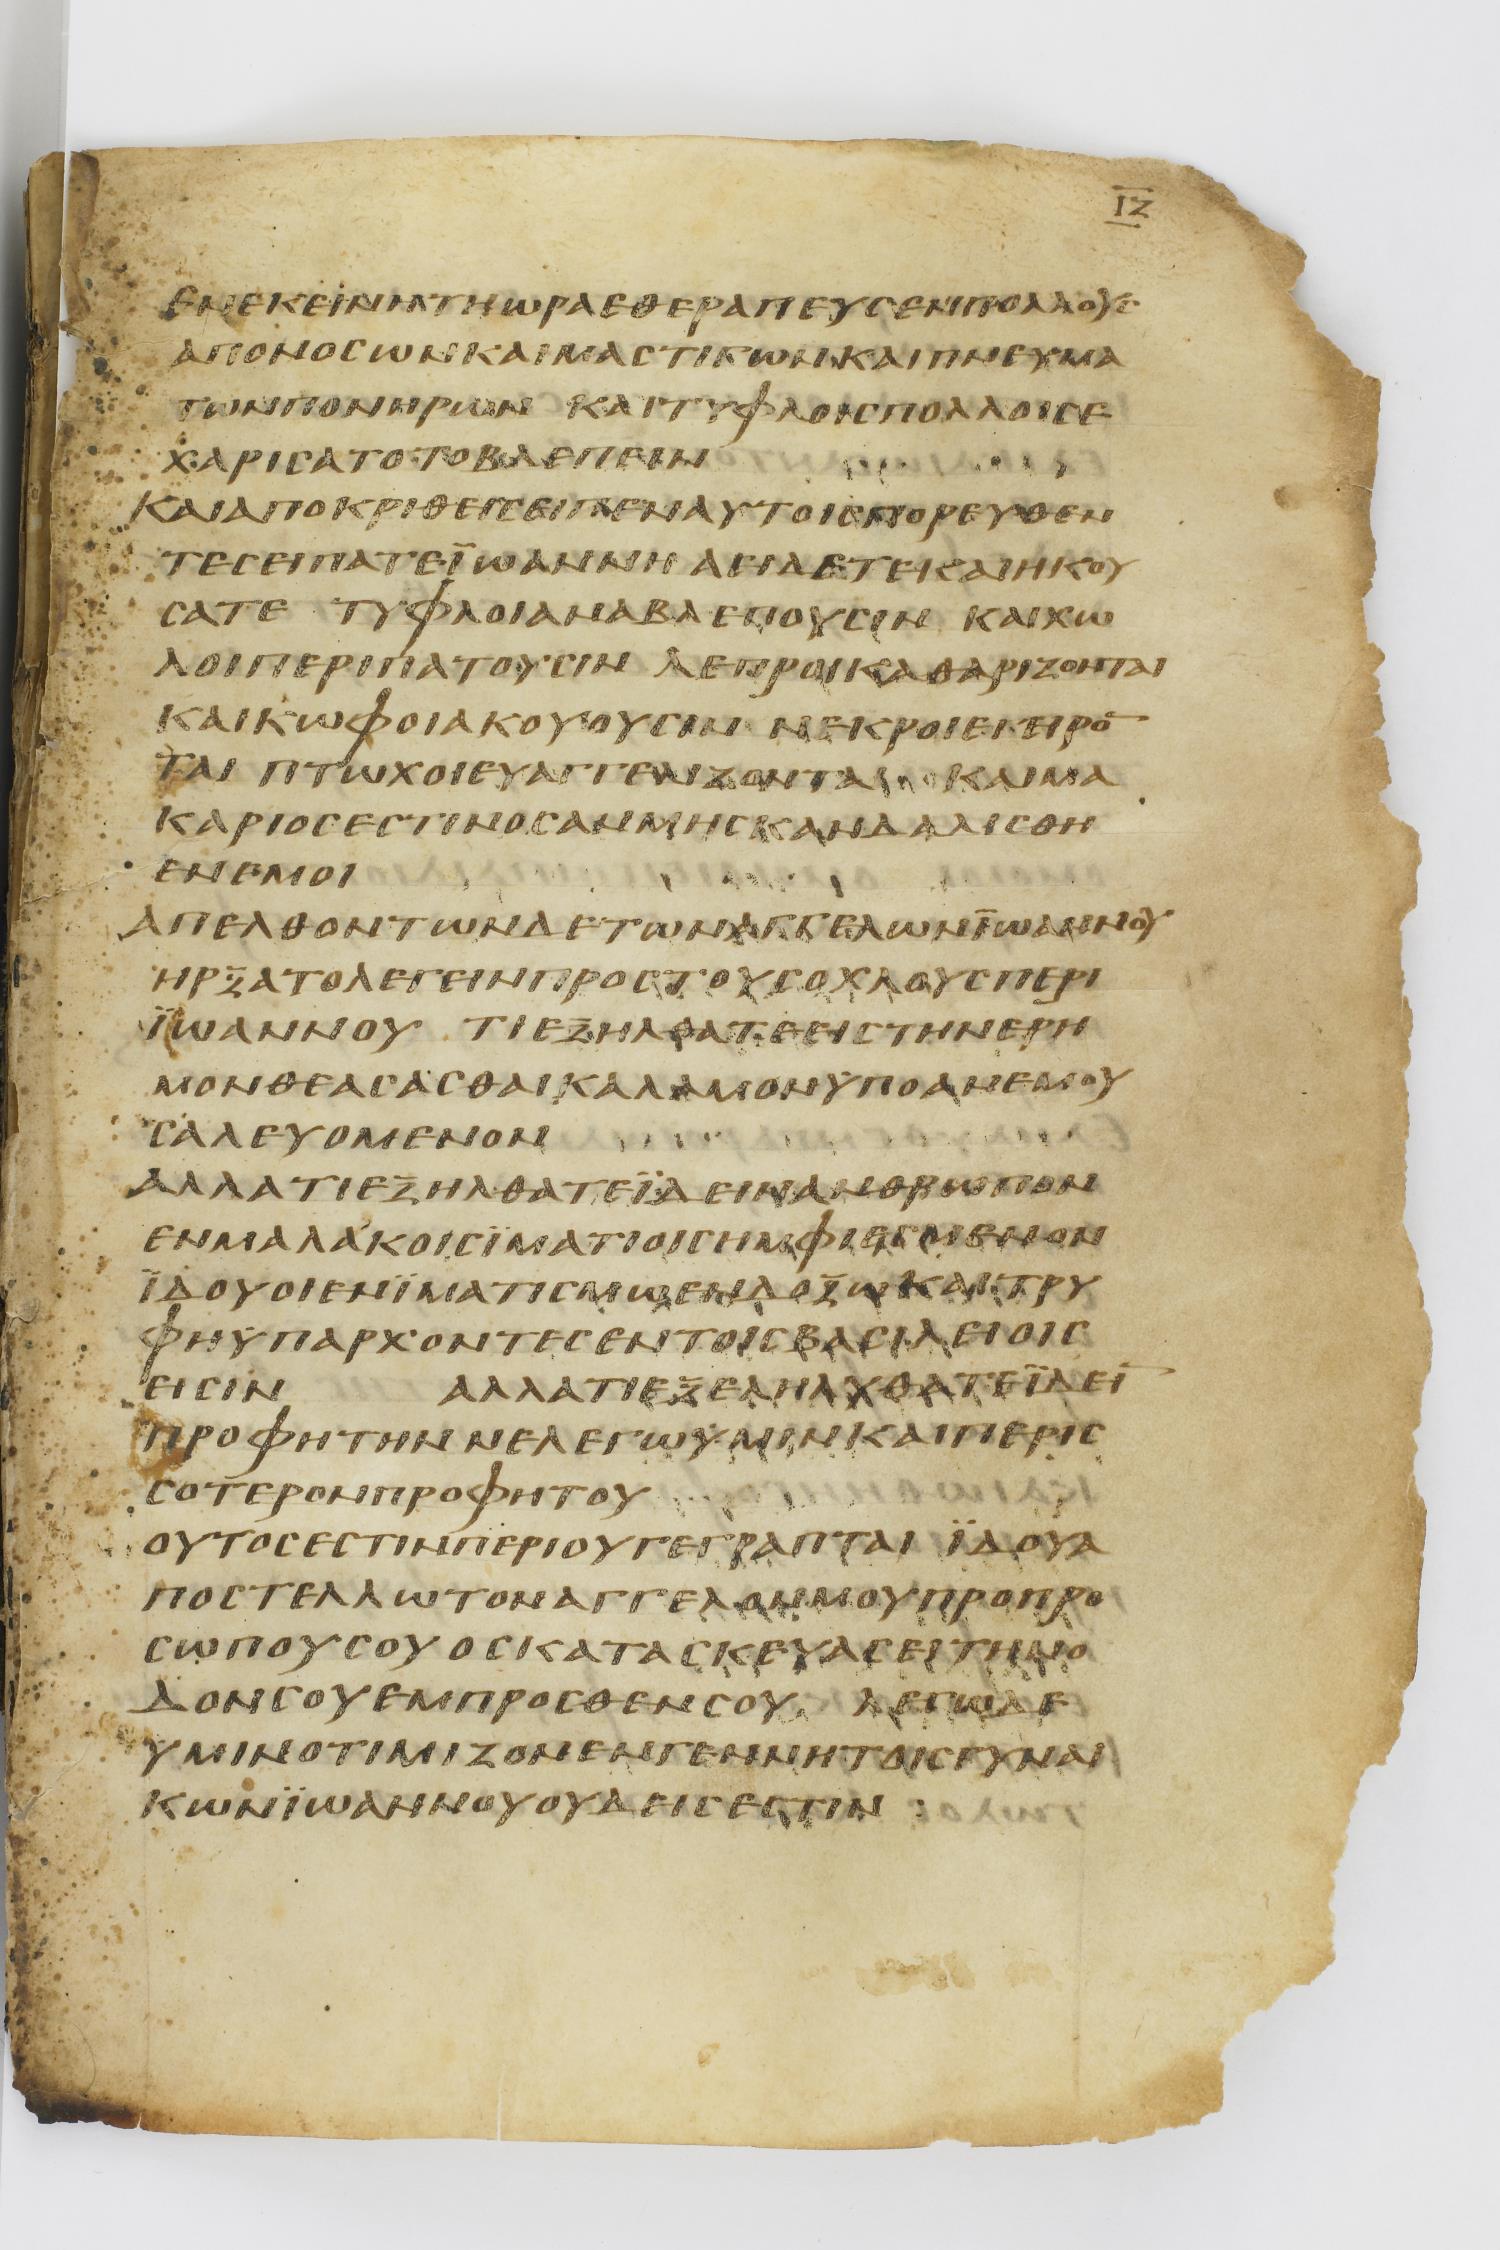 ΙΖ
ΕΝΕΚΕΙΝΗΤΗΩΡΑΕΘΕΡΑΠΕΥΣΕΝΠΟΛΛΟΥΣ
ΑΠΟΝΟΣΩΝΚΑΙΜΑΣΤΙΓΩΝΚΑΙΠΝΕΥΜΑ
ΤΩΝΠΟΝΗΡΩΝ ΚΑΙΤΥΦΛΟΙΣΠΟΛΛΟΙΣΕ
ΧΑΡΙΣΑΤΟΤΟΒΛΕΠΕΙΝ
ΚΑΙΑΠΟΚΡΙΘΕΙΣΕΙΠΕΝΑΥΤΟΙΣΠΟΡΕΥΘΕΝ
ΤΕΣΕΙΠΑΤΕΪΩΑΝΝΗ ΑΕΙΔΕΤΕΚΑΙΗΚΟΥ
ΣΑΤΕ ΤΥΦΛΟΙΑΝΑΒΛΕΠΟΥΣΙΝ ΚΑΙΧΩ
ΛΟΙΠΕΡΙΠΑΤΟΥΣΙΝ ΛΕΠΡΟΙΚΑΘΑΡΙΖΟΝΤΑΙ
ΚΑΙΚΩΦΟΙΑΚΟΥΟΥΣΙΝ ΝΕΚΡΟΙΕΓΕΙΡΟ̅
ΤΑΙ ΠΤΩΧΟΙΕΥΑΓΓΕΛΙΖΟΝΤΑΙ ΚΑΙΜΑ
ΚΑΡΙΟΣΕΣΤΙΝΟΣΑΝΜΗΣΚΑΝΔΑΛΙΣΘΗ
ΕΝΕΜΟΙ
ΑΠΕΛΘΟΝΤΩΝΔΕΤΩΝΑΓΓΕΛΩΝΪΩΑΝΝΟΥ
ΗΡΞΑΤΟΛΕΓΕΙΝΠΡΟΣΤΟΥΣΟΧΛΟΥΣΠΕΡΙ
ΪΩΑΝΝΟΥ ΤΙΕΞΗΛΘΑΤΕΕΙΣΤΗΝΕΡΗ
ΜΟΝΘΕΑΣΑΣΘΑΙΚΑΛΑΜΟΝΥΠΟΑΝΕΜΟΥ
ΣΑΛΕΥΟΜΕΝΟΝ
ΑΛΛΑΤΙΕΞΗΛΘΑΤΕΪΔΕΙΝΑΝΘΡΩΠΟΝ
ΕΝΜΑΛΑΚΟΙΣΪΜΑΤΙΟΙΣΗΜΦΙΕΣΜΕΝΟΝ
ΪΔΟΥΟΙΕΝΪΜΑΤΙΣΜΩΕΝΔΟΞΩΚΑΙΤΡΥ
ΦΗΥΠΑΡΧΟΝΤΕΣΕΝΤΟΙΣΒΑΣΙΛΕΙΟΙΣ
ΕΙΣΙΝ ΑΛΛΑΤΙΕΞΕΛΗΛΥΘΑΤΕΪΔΕΙ̅
ΠΡΟΦΗΤΗΝ ΝΕΛΕΓΩΥΜΙΝΚΑΙΠΕΡΙΣ
ΣΟΤΕΡΟΝΠΡΟΦΗΤΟΥ
ΟΥΤΟΣΕΣΤΙΝΠΕΡΙΟΥΓΕΓΡΑΠΤΑΙ ΪΔΟΥΑ
ΠΟΣΤΕΛΛΩΤΟΝΑΓΓΕΛΟΝΜΟΥΠΡΟΠΡΟ
ΣΩΠΟΥΣΟΥ ΟΣΚΑΤΑΣΚΕΥΑΣΕΙΤΗΝΟ
ΔΟΝΣΟΥΕΜΠΡΟΣΘΕΝΣΟΥ ΛΕΓΩΔΕ
ΥΜΙΝΟΤΙΜΙΖΟΝΕΝΓΕΝΝΗΤΟΙΣΓΥΝΑΙ
ΚΩΝΪΩΑΝΝΟΥΟΥΔΕΙΣΕΣΤΙΝ